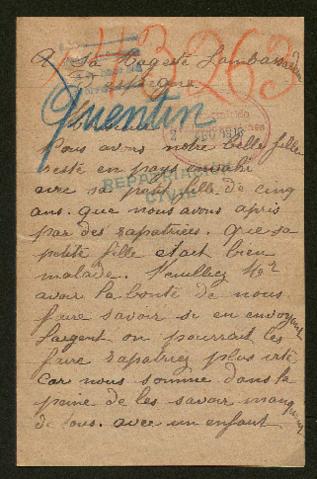 443263
A Sa Magesté Lambassadeur
D'espagne
Quentin
Nous avons notre belle fille
resté en pays envahi
avec sa petit fille de cinq
ans. que nous avons apris
par des rapatriées. que sa
petite fille etait bien
malade. Veuillez Mr
avoir la bonté de nous
faire savoir si en envoyant
Largent on pourrait les
faire rapatriez plus vite
car nous somme dans la
peine de les savoir manquer
de tous. avec un enfant